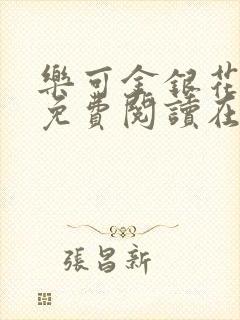 樂可金銀花
免費閱讀在
張昌新